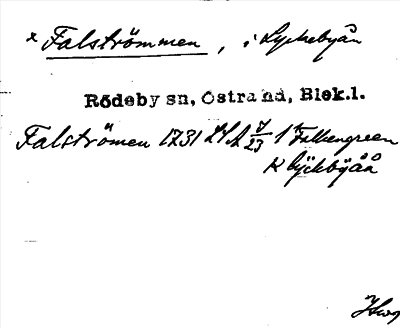 x Falströmmen, i Lyckebyån
Rödeby sn, Östra hd, Blek.l.
Falströmen 1731 LSA 7/23 1 Falkengreen
K lyckbyåå